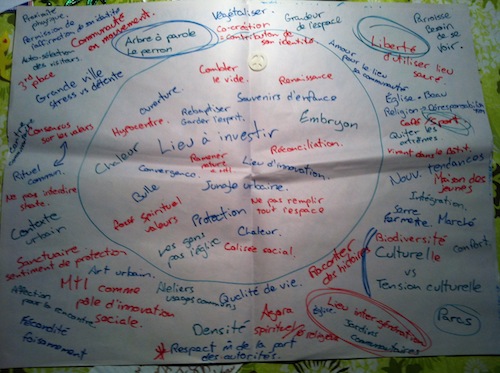 Permission de
Communauté
en mouvement.
Arbre à parole
Le perron
Végétaliser.
Co-création
= contribution de
son identité
Grandeur
de l'espace
Amour pour le lieu
sa communauté
Liberté
d'utiliser lieu
sacré
Paroisse
Besoin
de se
voir.
des visiteurs.
3rd
place
Grande ville
stress vs détente
Combler
le vide.
Renaissance
Souvenirs d'enfance
Ouverture
Rebaptiser
Garder l'esprit.
Embryon
Église = Beau
Religion = Déresponsabilisation
Café / Sport
Quitter les
extrêmes
Consensus
sur les valeurs
Hypocentre.
Lieu à investir
Réconciliation.
Chaleur
Ramener
nature
Lieu d'innovation.
Convergence.
Rituel
commun.
Nouv. tendances
Maison des
jeunes
Bulle
Jungle urbaine.
Ne pas remplir
tout l'espace
Intégration.
Serre
Fermette
Marché
Ne pas interdire
Contexte
urbain
Pour Spirituel
valeurs
Protection
Les gens
pas l'église
Chaleur.
Colisée social.
Biodiversité
Culturelle
vs
Tension culturelle
Confort.
Sanctuaire
sentiment de protection
Art urbain.
Raconter
des histoires
Mtl comme
pôle d'innovation
sociale.
Ateliers
usages communs
Qualité de vie.
Affection
pour la rencontre
Agora
spirituel & religieux
Église.
Lieu inter-génération
Jardins
communautaires
Parcs
Fécondité
foisonnement
Densité
* Respect m̂ de la part
des autorités.